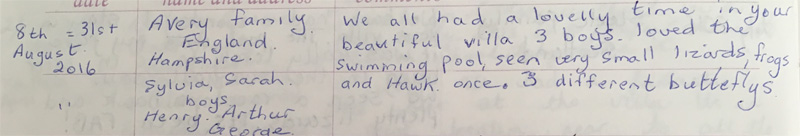 date name and address comments
8th = 31st Avery family. We all had a lovelly time in your
August England. beautiful villa 3 boys. loved the
2016 Hampshire. swimming pool, seen very small lizards, frogs
Sylvia, Sarah. and Hawk. once. 3 different butteflys
" boys
Henry. Arthur
George.